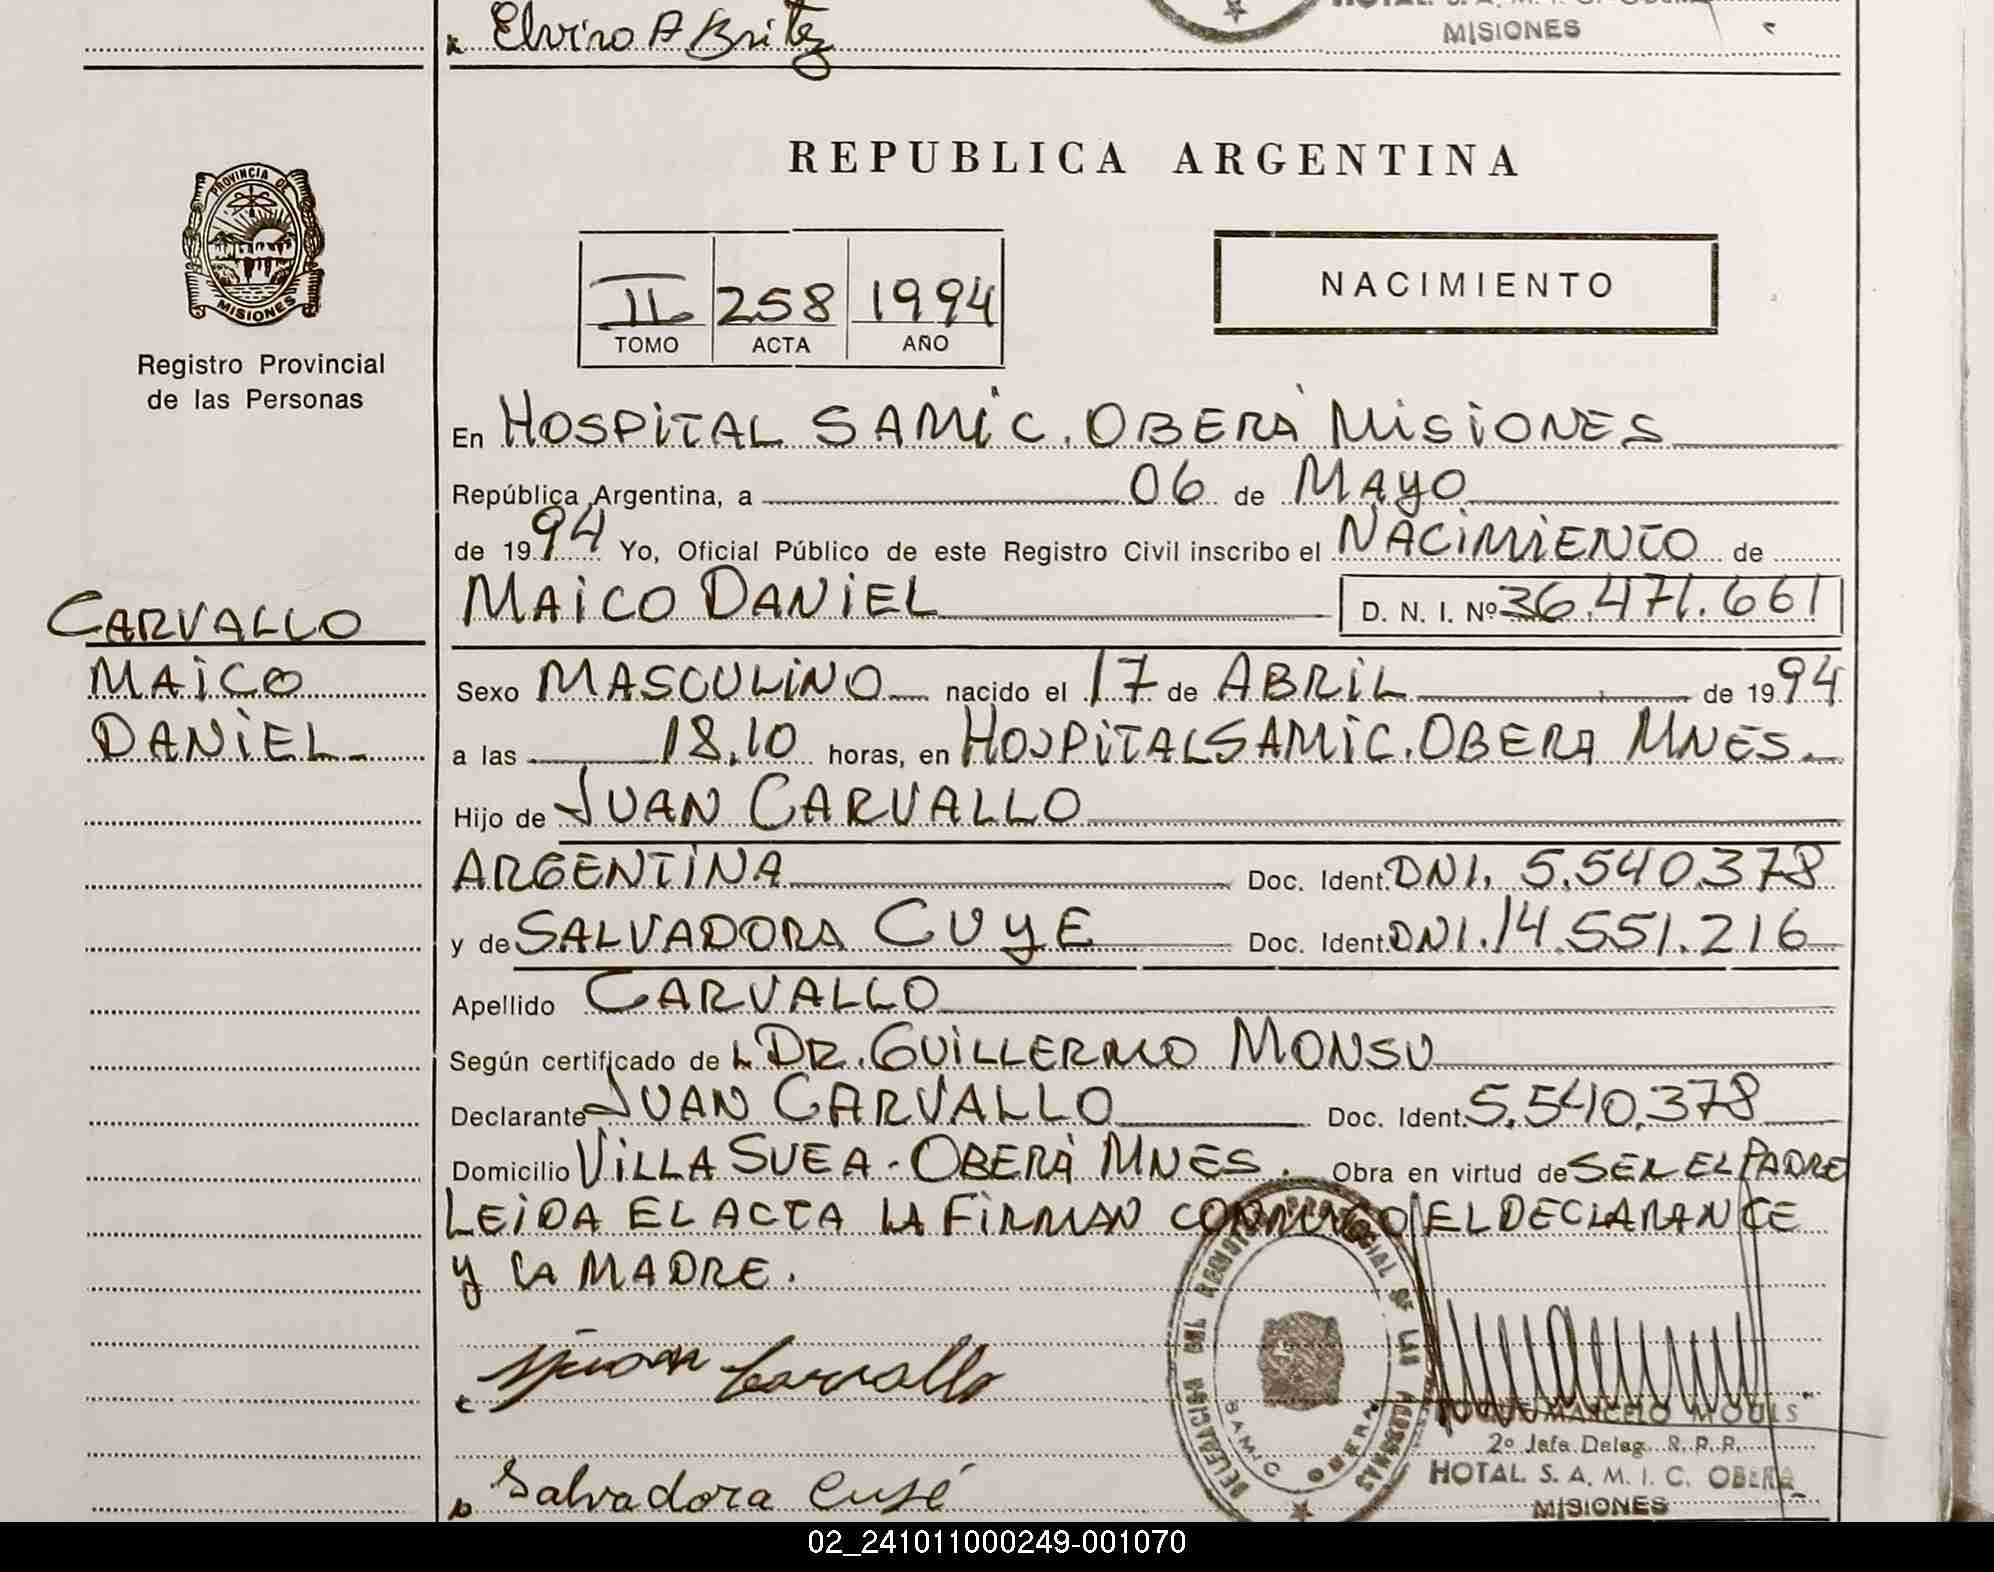 Elviro A Britez
MISIONES
REPUBLICA ARGENTINA
PROVINCIA DE
MISIONES
Registro Provincial
de las Personas
II 258 1994
TOMO ACTA AÑO
NACIMIENTO
En HOSPITAL SAMIC. OBERÁ MISIONES
República Argentina, a 06 de MAYO
de 1994 Yo, Oficial Público de este Registro Civil inscribo el NACIMIENTO de
MAICO DANIEL D. N. I. Nº 36.471.661
CARVALLO
MAICO
DANIEL
Sexo MASCULINO nacido el 17 de ABRIL de 1994
a las 18,10 horas, en HOSPITAL SAMIC. OBERA MNES.
Hijo de JUAN CARVALLO
ARGENTINA Doc. Ident. DNI. 5.540.378
y de SALVADORA CUYE Doc. Ident. DNI. 14.551.216
Apellido CARVALLO
Según certificado de DR. GUILLERMO MONSU
Declarante JUAN CARVALLO Doc. Ident. 5.540.378
Domicilio VILLA SUEA - OBERÁ MNES. Obra en virtud de SER EL PADRE
LEIDA EL ACTA LA FIRMAN CONMIGO EL DECLARANTE
y LA MADRE.
Juan Carvallo
Salvadora Cusé
DELEGACION DEL REGISTRO PROVINCIAL DE LAS PERSONAS
SAMIC OBERA
MARCELO MOULS
2º Jefe Deleg. R. P. P.
HOTAL. S. A. M. I. C. OBERA
MISIONES
02_241011000249-001070